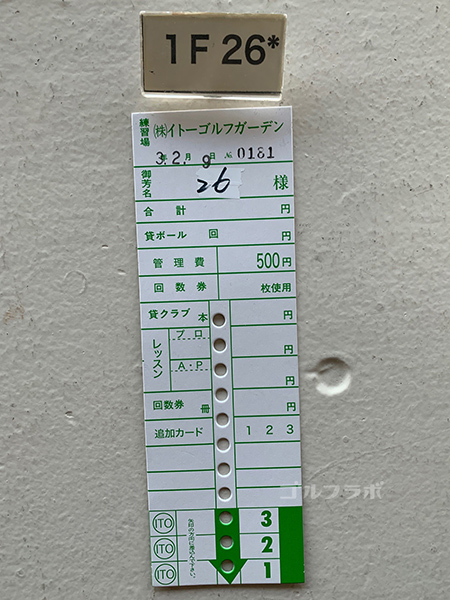 1F 26*
練習場 ㈱イトーゴルフガーデン
3年2月9日 № 0181
御芳名 26 様
合計 円
貸ボール 回 円
管理費 500円
回数券 枚使用
貸クラブ 本 円
レッスン プロ 円
A・P 円
回数券 冊 円
追加カード 1 2 3
ゴルフラボ
ITO 3
ITO 2
ITO 1
矢印の方向に差込んで下さい。